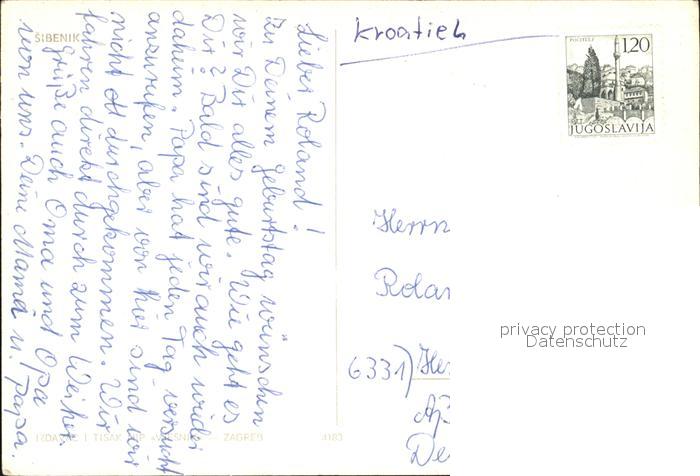 ŠIBENIK
Lieber Roland!
Zu Deinem Geburtstag wünschen
wir Dir alles gute. Wie geht es
Dir? Bald sind wir auch wieder
daheim. Papa hat jeden Tag versucht
anzurufen, aber von hier sind wir
nicht oft durchgekommen. Wir
fahren direkt durch zum Weiher.
grüße auch Oma und Opa
von uns. Deine Mama u. Papa.
Kroatien
POČITELJ
1,20
JUGOSLAVIJA
Herrn
Rolan
6331) He
De
privacy protection
Datenschutz
I TISAK
ZAGREB
4183